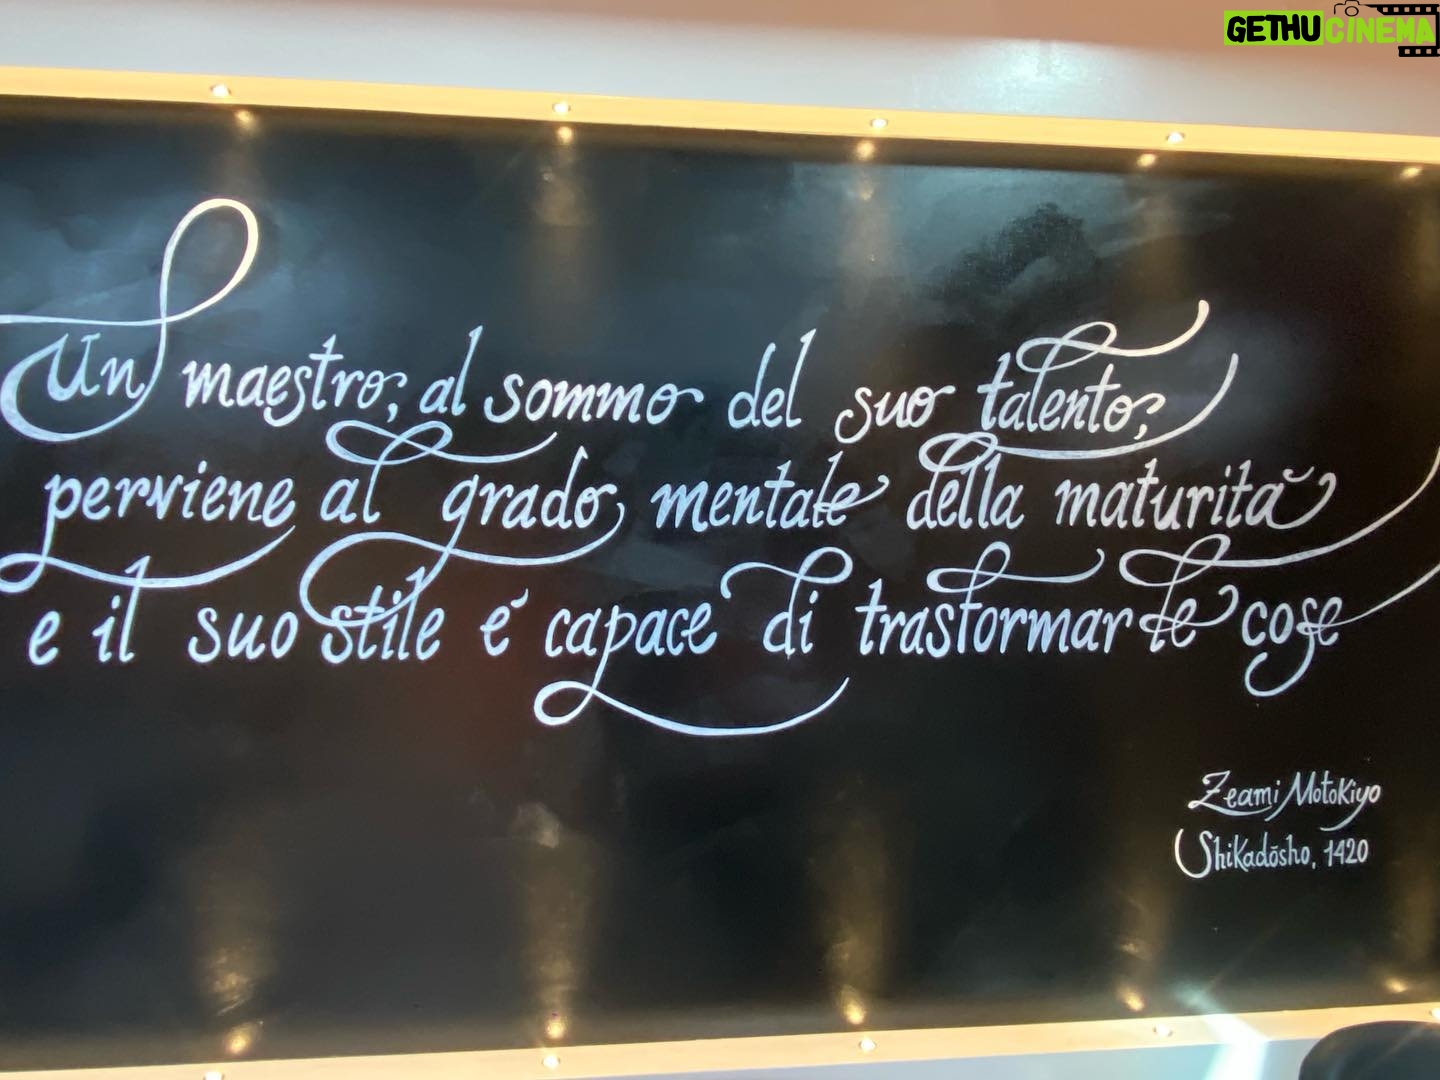 GETHU CINEMA
Un maestro, al sommo del suo talento,
perviene al grado mentale della maturità
e il suo stile é capace di trasformar le cose
Zeami Motokiyo
Shikadōsho, 1420